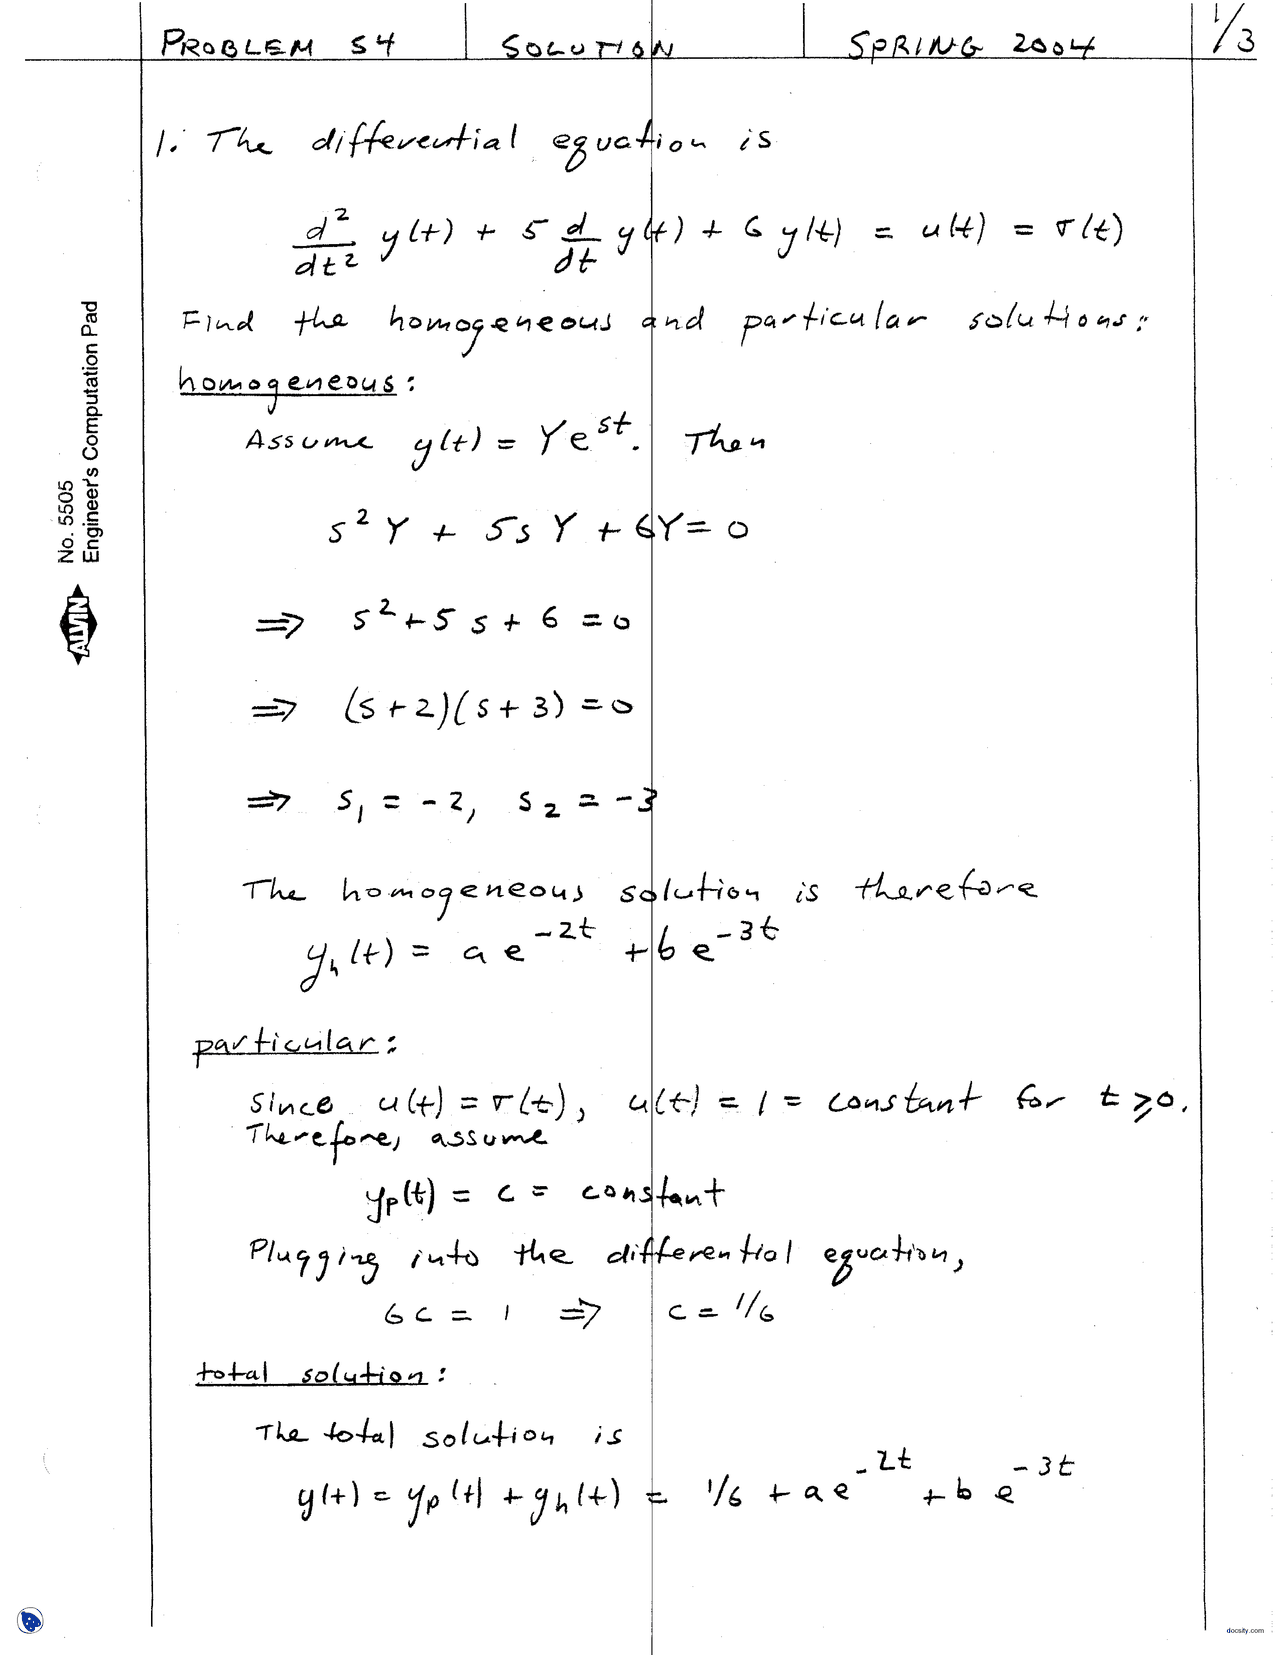 PROBLEM S4 SOLUTION SPRING 2004 1/3
1. The differential equation is
d²/dt² y(t) + 5 d/dt y(t) + 6 y(t) = u(t) = σ(t)
Find the homogeneous and particular solutions:
homogeneous:
Assume y(t) = Ye^{st}. Then
s²Y + 5sY + 6Y = 0
⇒ s² + 5s + 6 = 0
⇒ (s+2)(s+3) = 0
⇒ s₁ = -2, s₂ = -3
The homogeneous solution is therefore
y_h(t) = a e^{-2t} + b e^{-3t}
particular:
Since u(t) = σ(t), u(t) = 1 = constant for t ≥ 0.
Therefore, assume
y_p(t) = c = constant
Plugging into the differential equation,
6c = 1 ⇒ c = 1/6
total solution:
The total solution is
y(t) = y_p(t) + y_h(t) = 1/6 + a e^{-2t} + b e^{-3t}
No. 5505
Engineer's Computation Pad
ALVIN
docsity.com